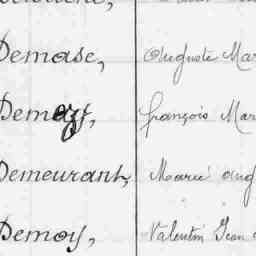 Demase, Auguste Mar
Demazy, François Mar
Demeurant, Marie aug
Demoy, Valentin Jean